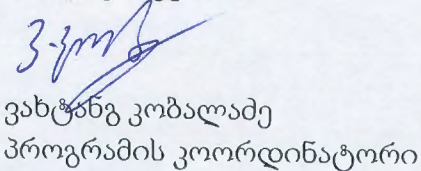 ვახტანგ კობალაძე
პროგრამის კოორდინატორი